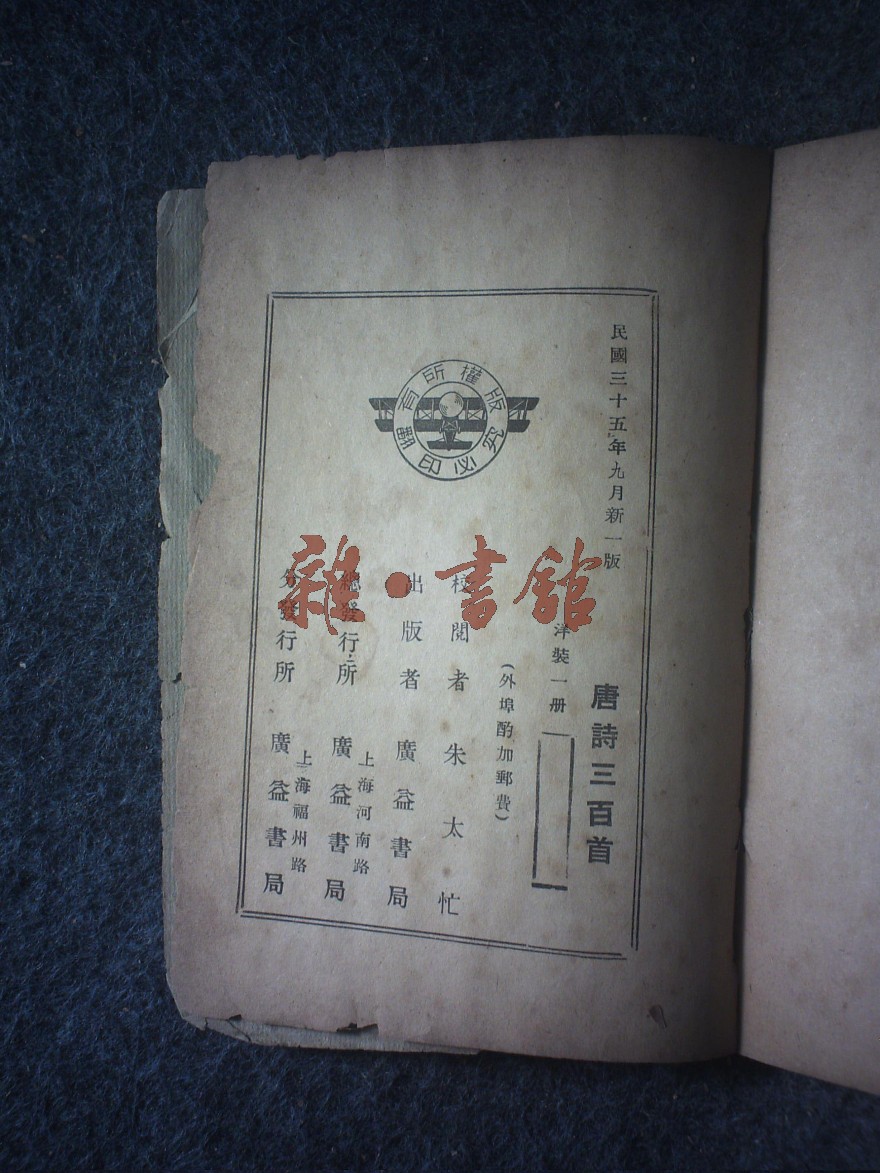 民國三十五年九月新一版
唐詩三百首
洋裝一册
(外埠酌加郵費)
校閲者 朱太忙
出版者 廣益書局
總發行所 上海河南路 廣益書局
分發行所 上海福州路 廣益書局
版權所有
翻印必究
雜·書館